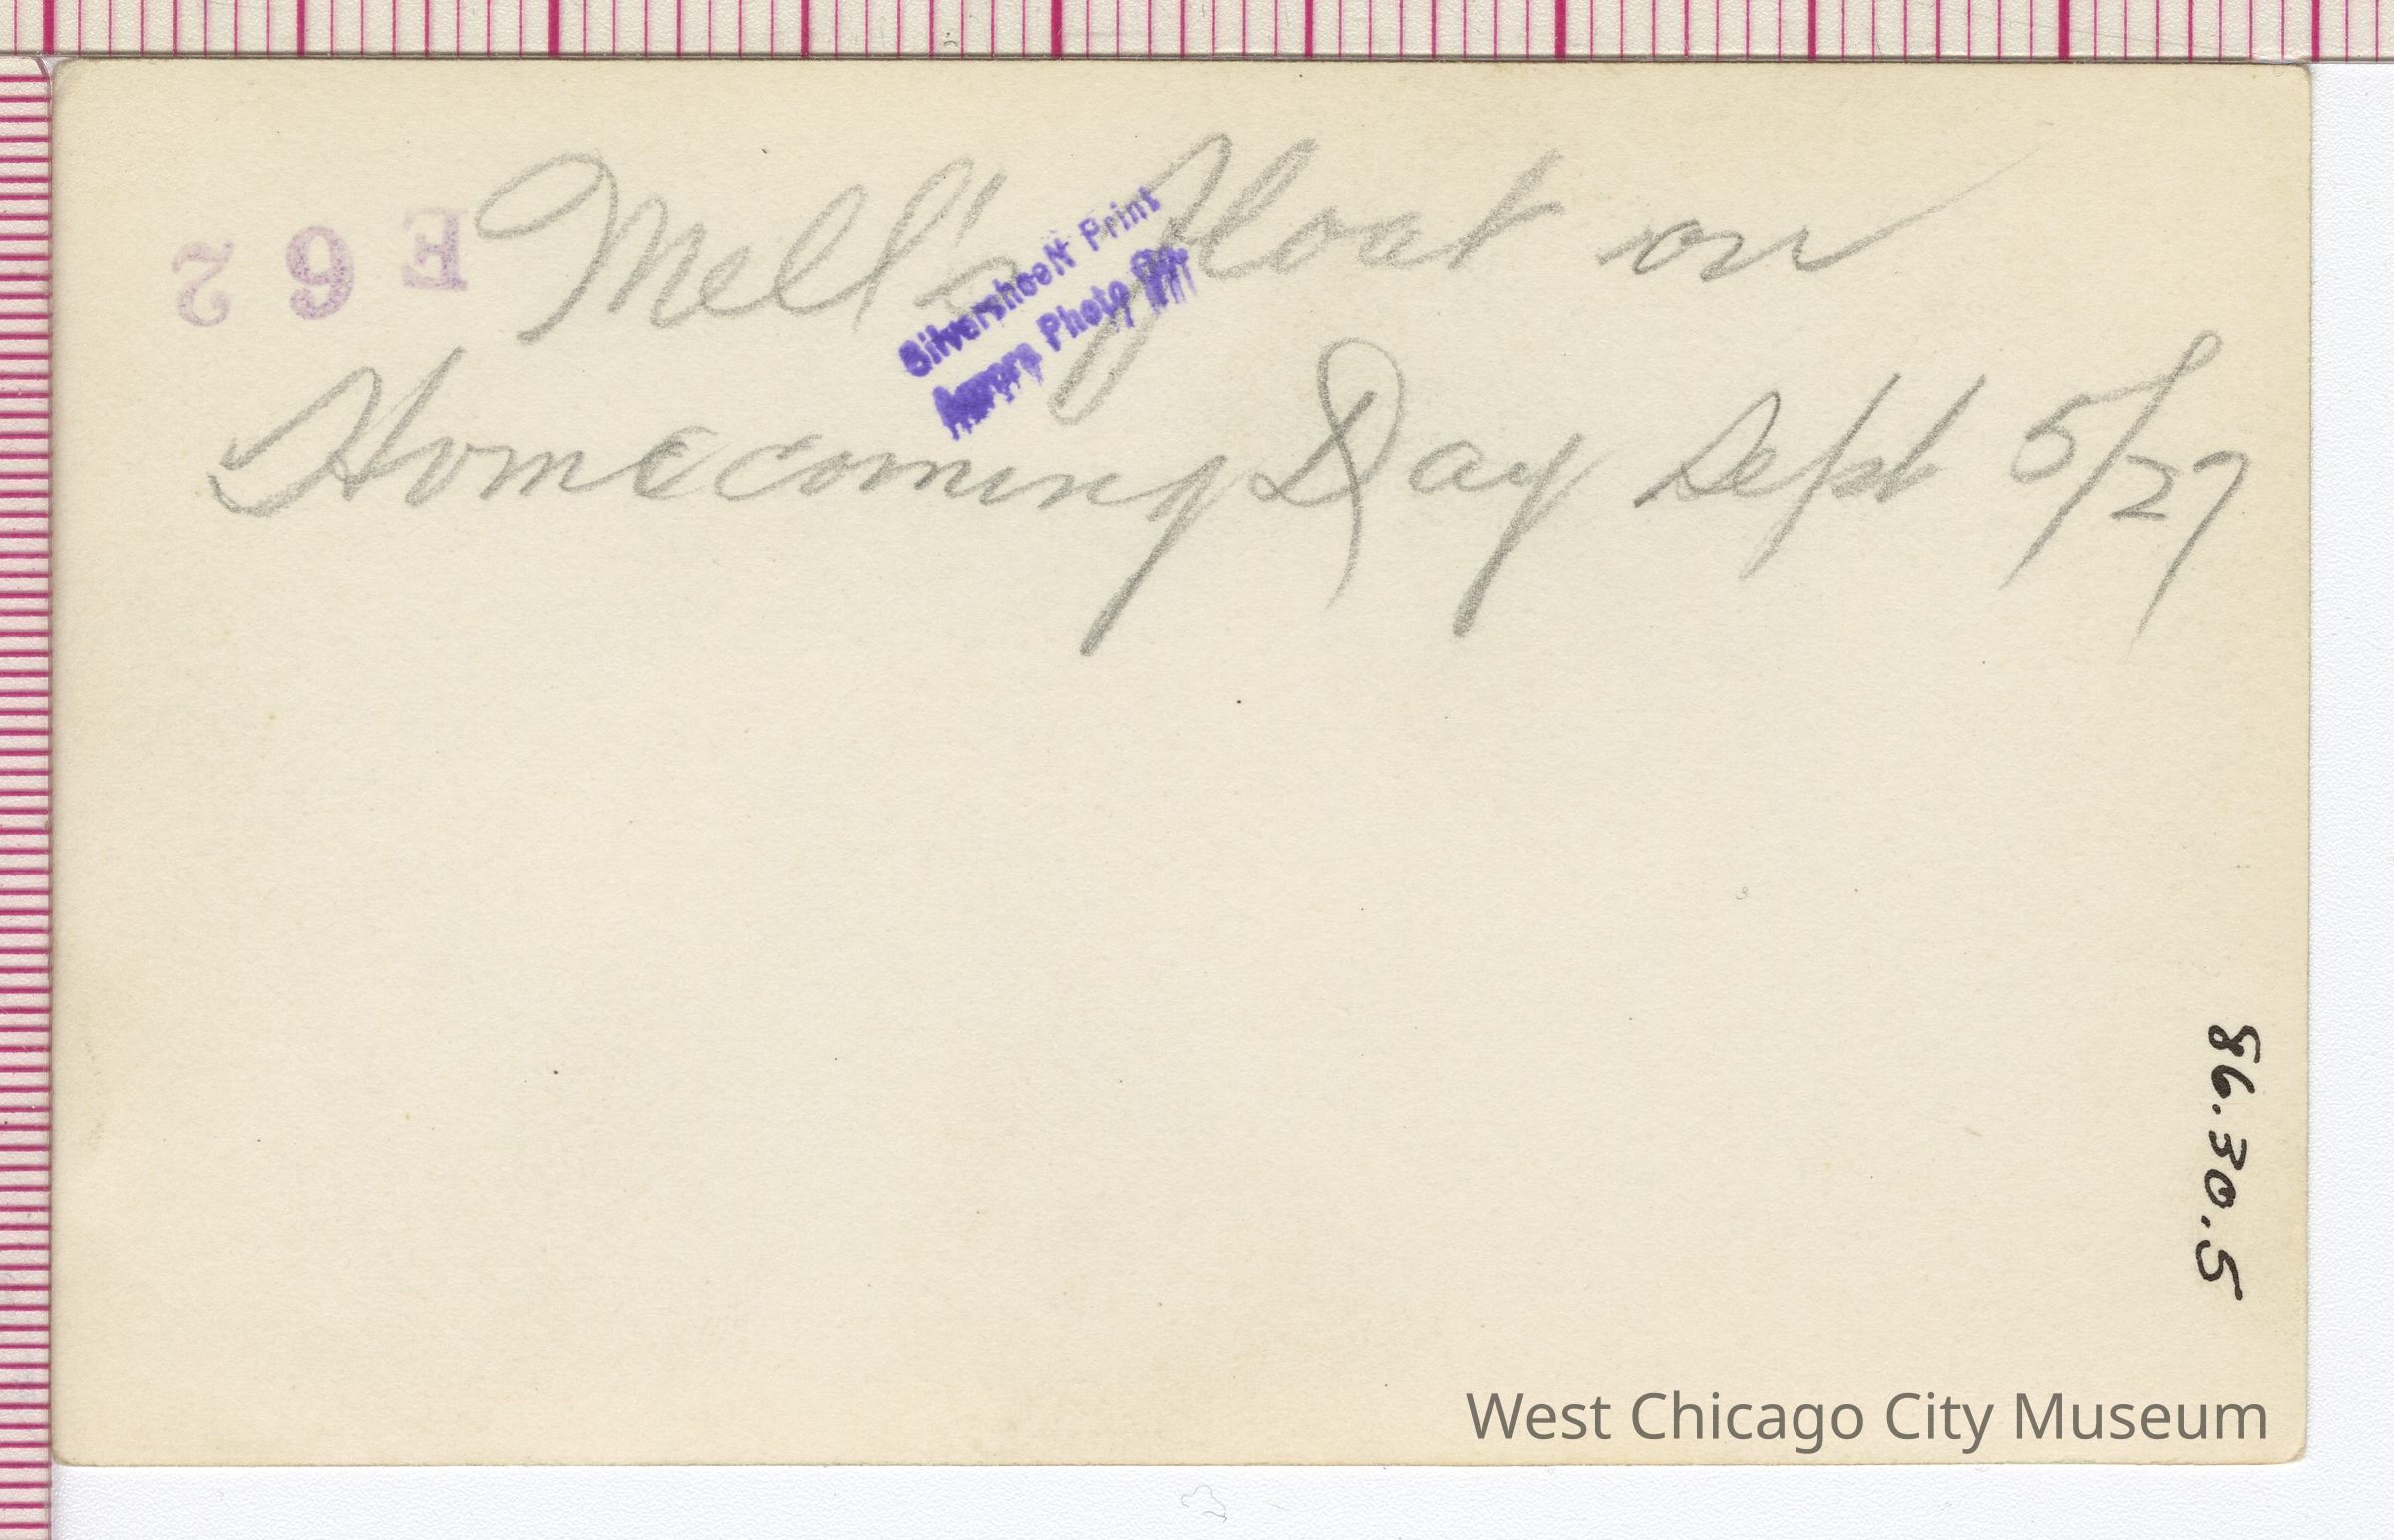 E 6 2
Mell's float on
Homecoming Day Sept 5/27
SilversheeN Print
Photo
86.30.5
West Chicago City Museum